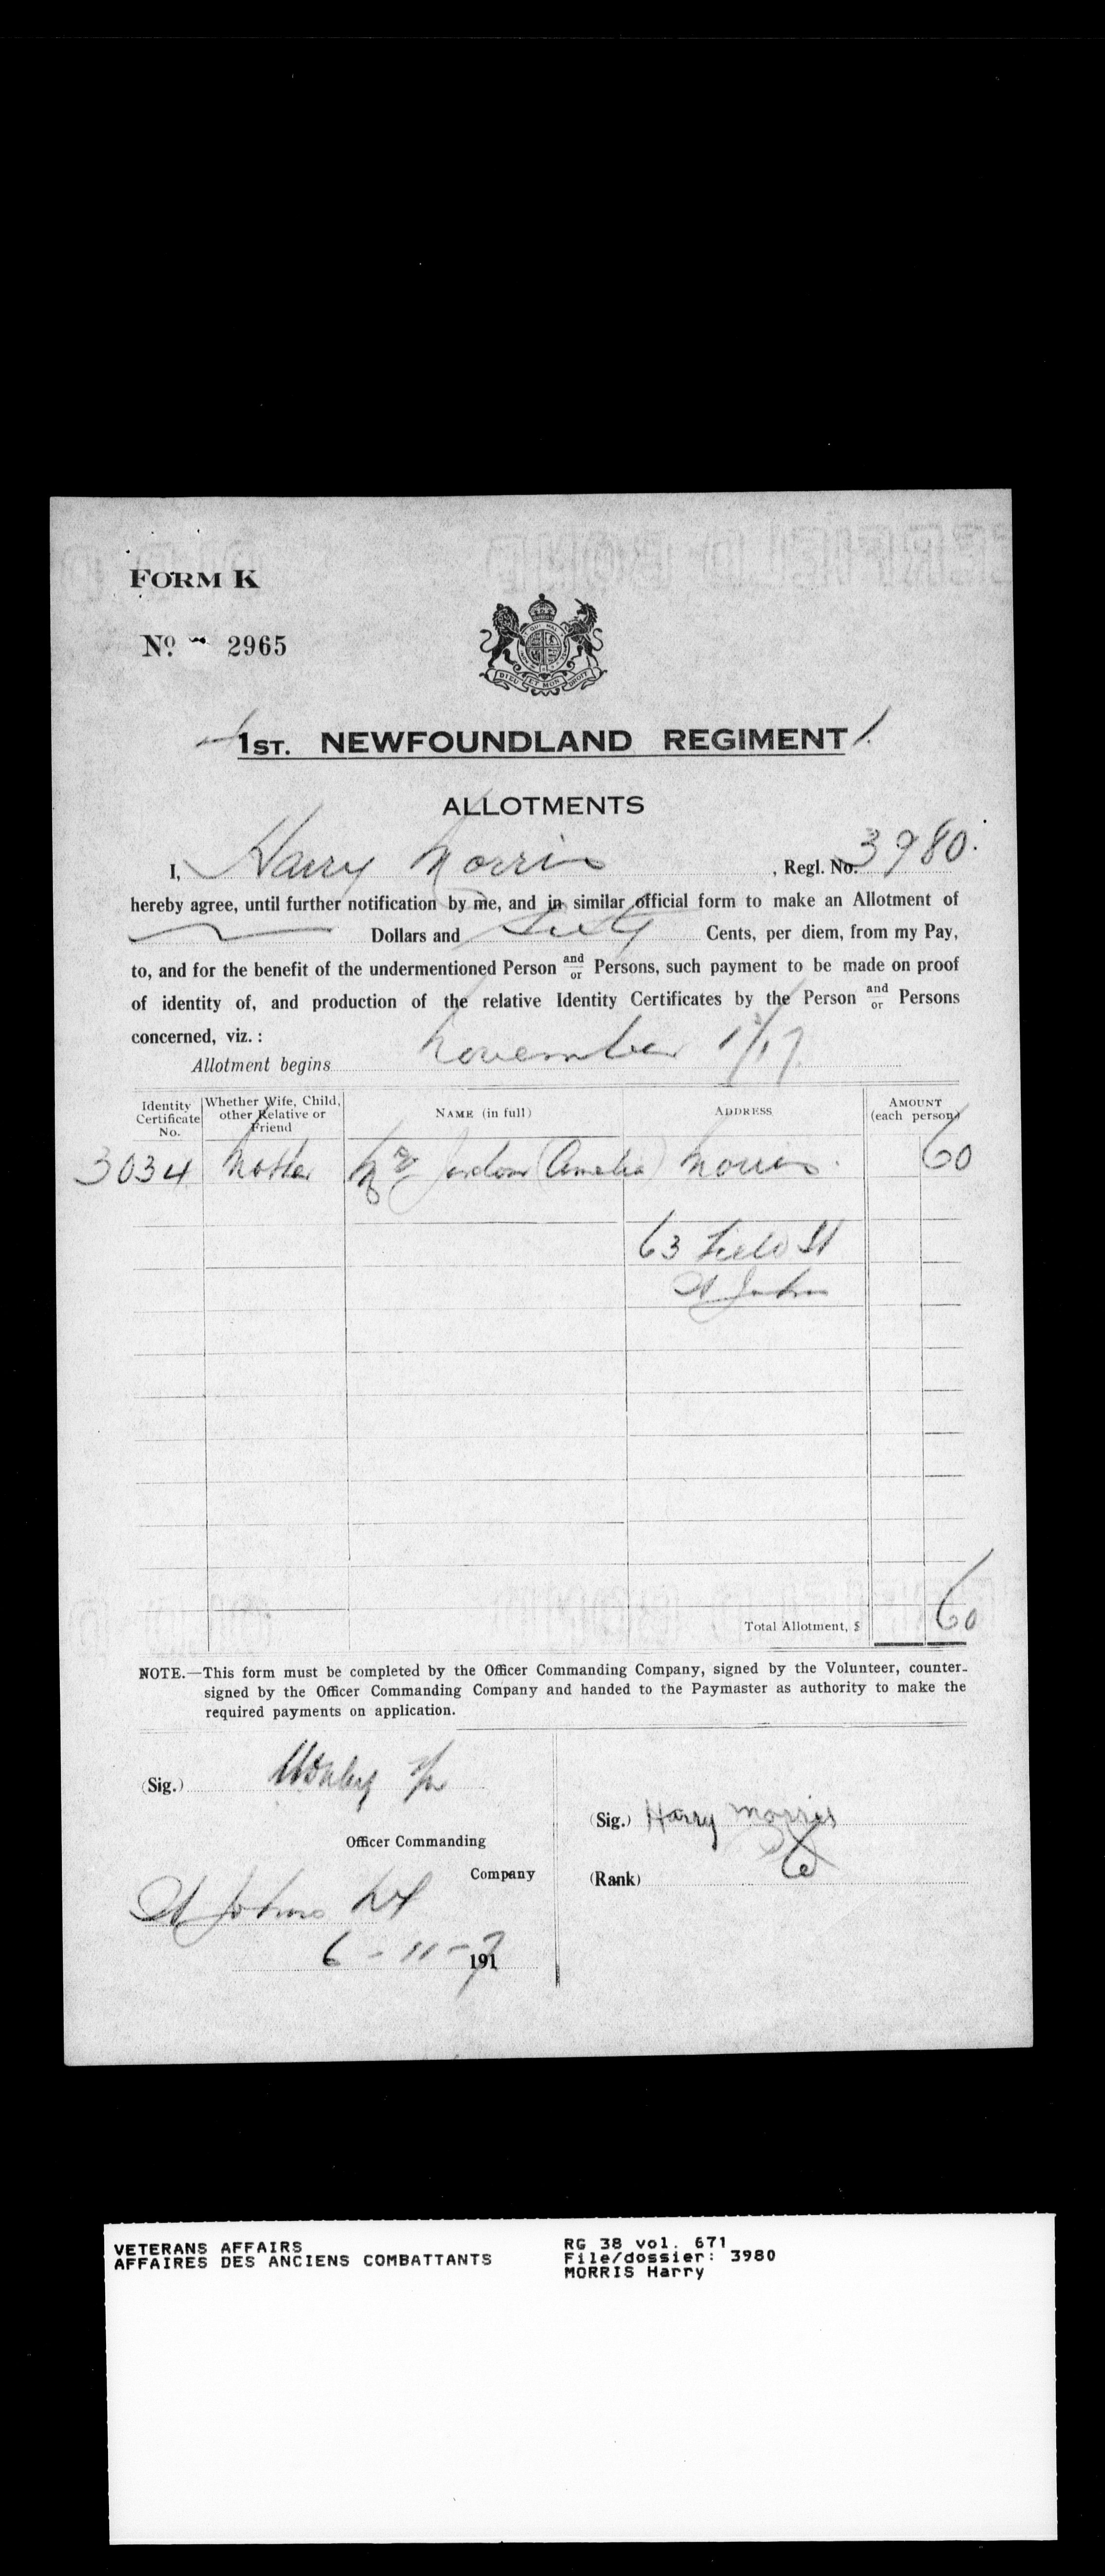 FORM K
No. 2965
DIEU ET MON DROIT
1ST. NEWFOUNDLAND REGIMENT
ALLOTMENTS
I, Harry Morris, Regl. No. 3980.
hereby agree, until further notification by me, and in similar official form to make an Allotment of
Dollars and Sixty Cents, per diem, from my Pay,
to, and for the benefit of the undermentioned Person and/or Persons, such payment to be made on proof
of identity of, and production of the relative Identity Certificates by the Person and/or Persons
concerned, viz. :
Allotment begins November 1/17
Identity Certificate No. Whether Wife, Child, other Relative or Friend NAME (in full) ADDRESS AMOUNT (each person)
3034 Mother Mrs (Amelia) Morris. 60
63 Field St
St Johns
Total Allotment, $ 60
NOTE.—This form must be completed by the Officer Commanding Company, signed by the Volunteer, counter-
signed by the Officer Commanding Company and handed to the Paymaster as authority to make the
required payments on application.
(Sig.)
Officer Commanding
Company
(Sig.) Harry Morris
(Rank)
St Johns Nf
6-11-1917
VETERANS AFFAIRS
AFFAIRES DES ANCIENS COMBATTANTS
RG 38 vol. 671
File/dossier: 3980
MORRIS Harry